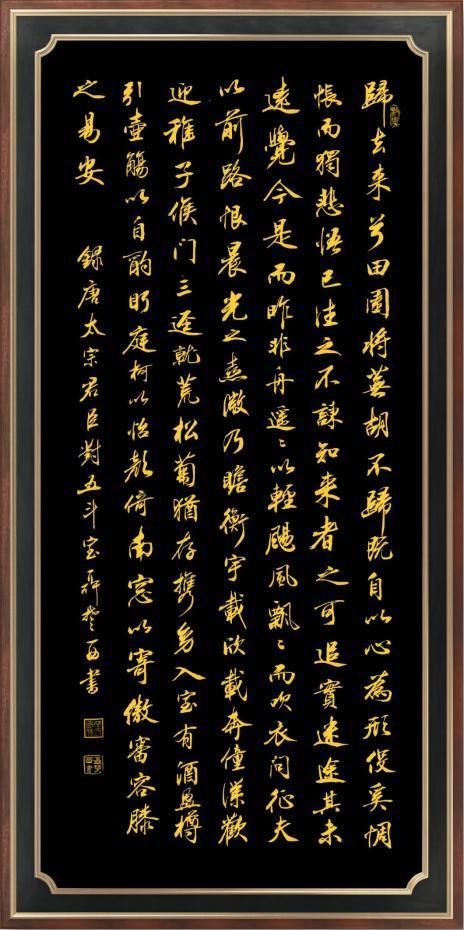 歸去来兮田園將蕪胡不歸既自以心為形役奚惆
悵而獨悲悟已往之不諫知来者之可追實迷途其未
遠覺今是而昨非舟遥〻以輕颺風飄〻而吹衣问征夫
以前路恨晨光之熹微乃瞻衡宇載欣載奔僮僕歡
迎稚子候门三迳就荒松菊猶存携幼入室有酒盈樽
引壺觴以自酌眄庭柯以怡颜倚南窓以寄傲審容膝
之易安
錄唐太宗君臣對五斗室西書